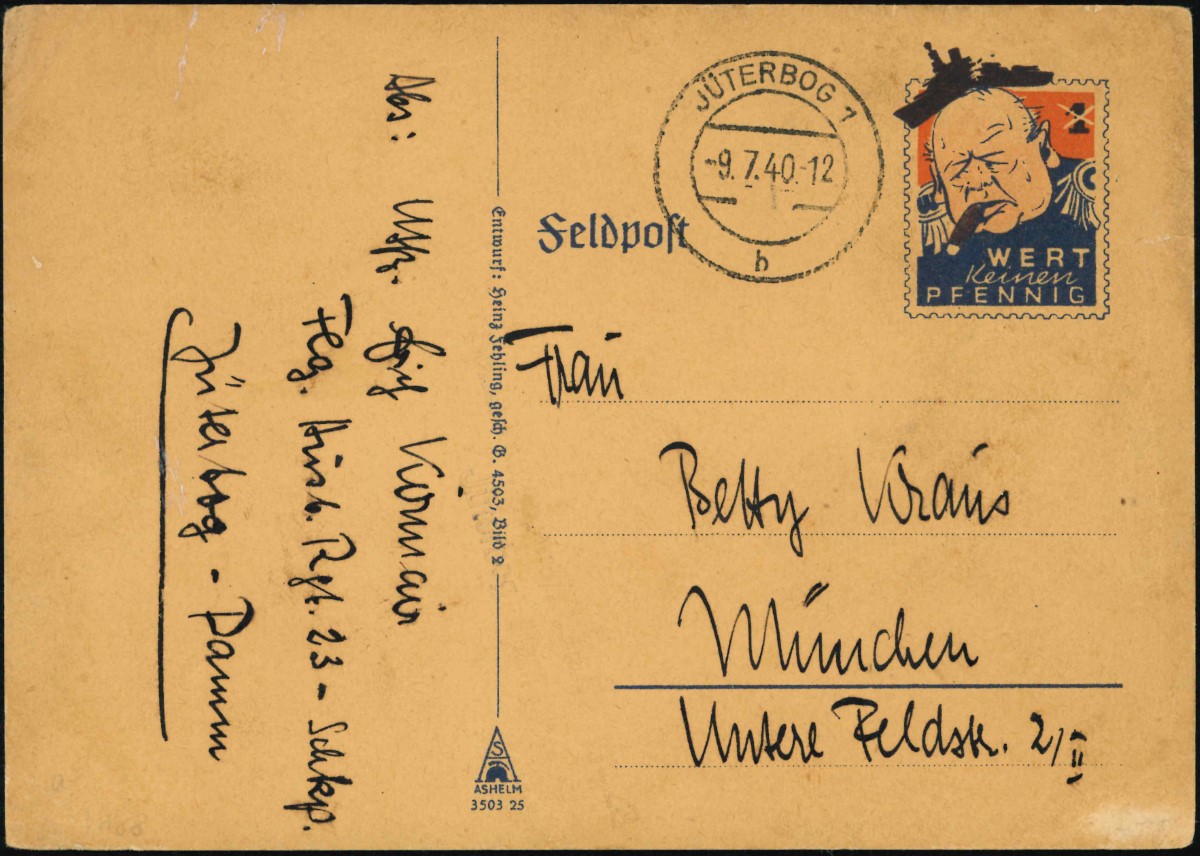 Abs: Uffz.
Vornair
Flg. Ausb. Rgt. 23 – Schkp.
Jüterbog - Damm
Entwurf: Heinz Fehling, gesch. G. 4503, Bild 2
S
ASHELM
3503 25
Feldpost
JÜTERBOG 1
-9.7.40.-12
b
1
WERT
keinen
PFENNIG
Frau
Betty Kraus
München
Untere Feldstr. 2/II